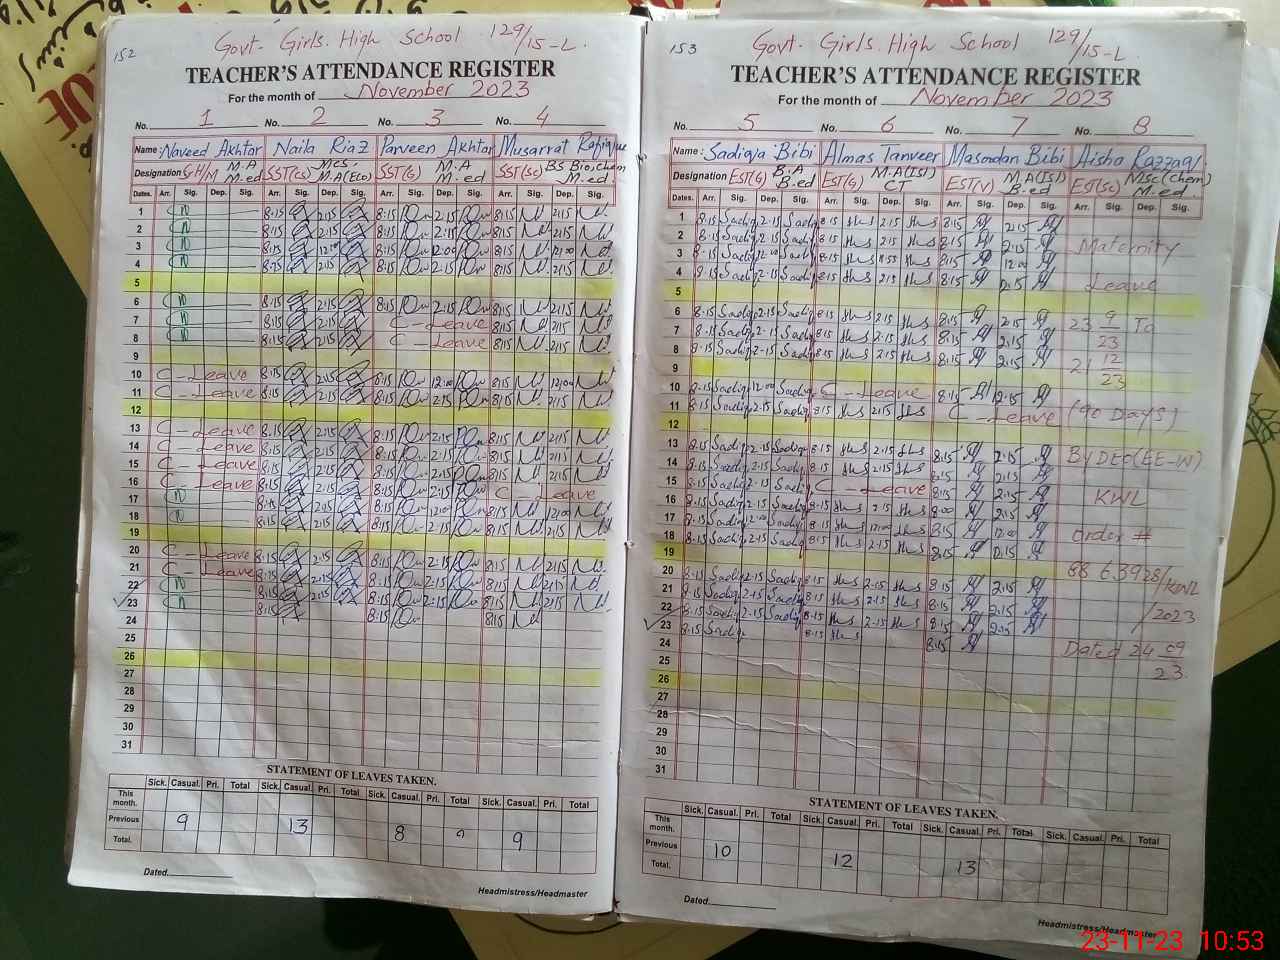 152
Govt. Girls. High School 129/15-L.
TEACHER'S ATTENDANCE REGISTER
For the month of November 2023
No. 1 No. 2 No. 3 No. 4
Name: Naveed Akhtar Naila Riaz Parveen Akhtar Musarrat Rafique
Designation S.H/M M.A M.ed SST(cs) Mcs. M.A(Eco) SST(G) M.A M.ed SST(Sc) BS Bio, chem M.ed
Dates. Arr. Sig. Dep. Sig. Arr. Sig. Dep. Sig. Arr. Sig. Dep. Sig. Arr. Sig. Dep. Sig.
1 8:15 2:15 8:15 2:15 8:15 2:15
2 8:15 2:15 8:15 2:15 8:15 2:15
3 8:15 12:00 8:15 12:00 8:15 12:00
4 8:15 2:15 8:15 2:15 8:15 2:15
5
6 8:15 2:15 8:15 2:15 8:15 2:15
7 8:15 2:15 C-Leave 8:15 2:15
8 8:15 2:15 C-Leave 8:15 2:15
9
10 C-Leave 8:15 2:15 8:15 12:00 8:15 12:00
11 C-Leave 8:15 2:15 8:15 2:15 8:15 2:15
12
13 C-Leave 8:15 2:15 8:15 2:15 8:15 2:15
14 C-Leave 8:15 2:15 8:15 2:15 8:15 2:15
15 C-Leave 8:15 2:15 8:15 2:15 8:15 2:15
16 C-Leave 8:15 2:15 8:15 2:15 C-Leave
17 8:15 2:15 8:15 12:00 8:15 12:00
18 8:15 2:15 8:15 2:15 8:15 2:15
19
20 C-Leave 8:15 2:15 8:15 2:15 8:15 2:15
21 C-Leave 8:15 2:15 8:15 2:15 8:15 2:15
22 8:15 2:15 8:15 2:15 8:15 2:15
23 8:15 8:15 8:15
24
25
26
27
28
29
30
31
STATEMENT OF LEAVES TAKEN.
Sick. Casual. Pri. Total Sick. Casual. Pri. Total Sick. Casual. Pri. Total Sick. Casual. Pri. Total
This month.
Previous 9 13 8 9
Total.
Dated.
Headmistress/Headmaster
153
Govt. Girls. High School 129/15-L.
TEACHER'S ATTENDANCE REGISTER
For the month of November 2023
No. 5 No. 6 No. 7 No. 8
Name: Sadiqa Bibi Almas Tanveer Masadan Bibi Aisha Razzaq
Designation EST(G) B.A B.ed EST(G) M.A(Isl) CT EST(V) M.A(Isl) B.ed EST(Sc) MSc(chem) M.ed
Dates. Arr. Sig. Dep. Sig. Arr. Sig. Dep. Sig. Arr. Sig. Dep. Sig. Arr. Sig. Dep. Sig.
1 8:15 Sadiq 2:15 Sadiq 8:15 2:15 8:15 2:15
2 8:15 Sadiq 2:15 Sadiq 8:15 2:15 8:15 2:15 Maternity
3 8:15 Sadiq 12:00 Sadiq 8:15 8:15 12:00
4 8:15 Sadiq 2:15 Sadiq 8:15 2:15 8:15 2:15 Leave
5
6 8:15 Sadiq 2:15 Sadiq 8:15 2:15 8:15 2:15 23 9/23 To
7 8:15 Sadiq 2:15 Sadiq 8:15 2:15 8:15 2:15
8 8:15 Sadiq 2:15 Sadiq 8:15 2:15 8:15 2:15 21 12/23
9
10 8:15 Sadiq 12:00 Sadiq C-Leave 8:15 12:15
11 8:15 Sadiq 2:15 Sadiq 8:15 2:15 C-Leave (90 Days)
12
13 8:15 Sadiq 2:15 Sadiq 8:15 2:15 8:15 2:15 By DEO(EE-W)
14 8:15 Sadiq 2:15 Sadiq 8:15 2:15 8:15 2:15
15 8:15 Sadiq 2:15 Sadiq C-Leave 8:15 2:15 KWL
16 8:15 Sadiq 2:15 Sadiq 8:15 2:15 8:00 2:15
17 8:15 Sadiq 12:00 Sadiq 8:15 12:00 8:15 12:00 order #
18 8:15 Sadiq 2:15 Sadiq 8:15 2:15 8:15 2:15
19
20 8:15 Sadiq 2:15 Sadiq 8:15 2:15 8:15 2:15 88 63928/KWL
21 8:15 Sadiq 2:15 Sadiq 8:15 2:15 8:15 2:15
22 8:15 Sadiq 2:15 Sadiq 8:15 2:15 8:15 2:15 /2023
23 8:15 Sadiq 8:15 8:15
24 Dated 24 09/23
25
26
27
28
29
30
31
STATEMENT OF LEAVES TAKEN.
Sick. Casual. Pri. Total Sick. Casual. Pri. Total Sick. Casual. Pri. Total Sick. Casual. Pri. Total
This month.
Previous 10 12 13
Total.
Dated.
Headmistress/Headmaster
23-11-23 10:53